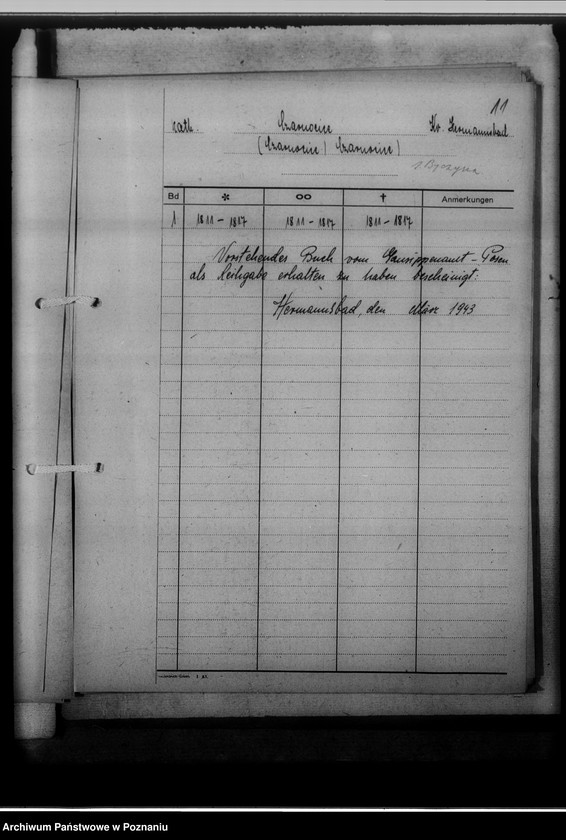 11
cath. Czarnocice Kr. Hermannsbad
(Czarnocice) Czarnocice)
Bd * oo † Anmerkungen
1 1811 - 1817 1811 - 1817 1811 - 1817
Vorstehendes Buch vom Gausippenamt - Posen
als Leihgabe erhalten zu haben bescheinigt:
Hermannsbad, den März 1943
Archiwum Państwowe w Poznaniu